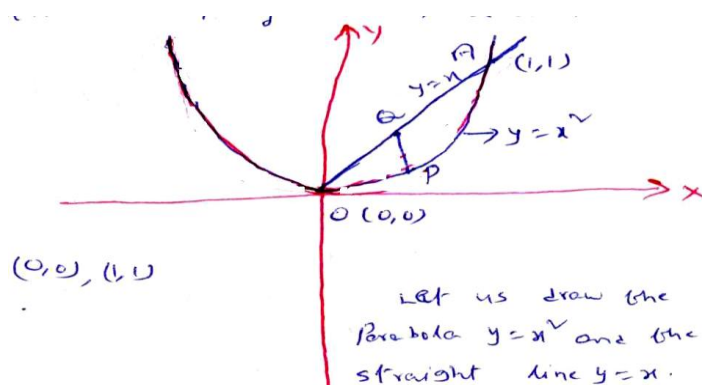 Y
A
(1,1)
y=x
Q
y = x²
P
X
O (0,0)
(0,0), (1,1)
Let us draw the
Parabola y=x² and the
straight line y=x.